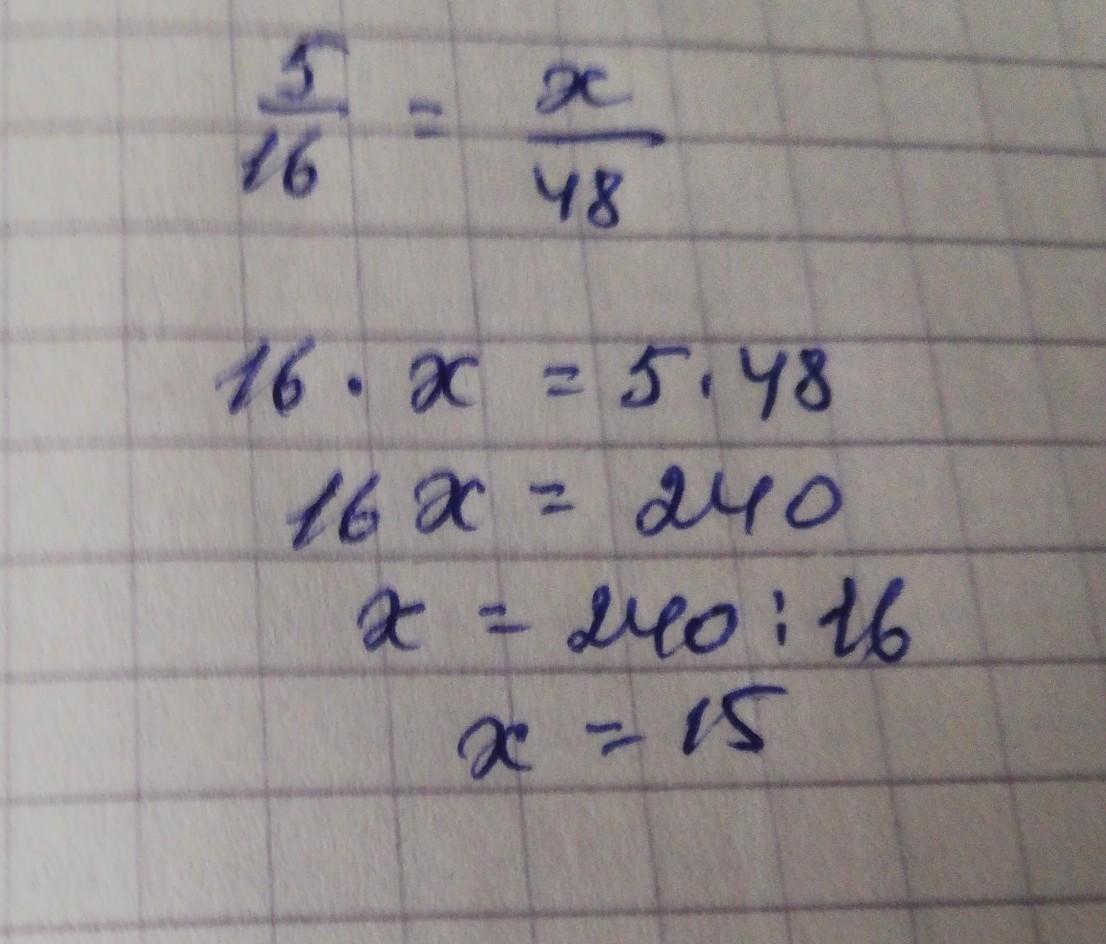 5/16 = x/48
16 · x = 5 · 48
16x = 240
x = 240 : 16
x = 15